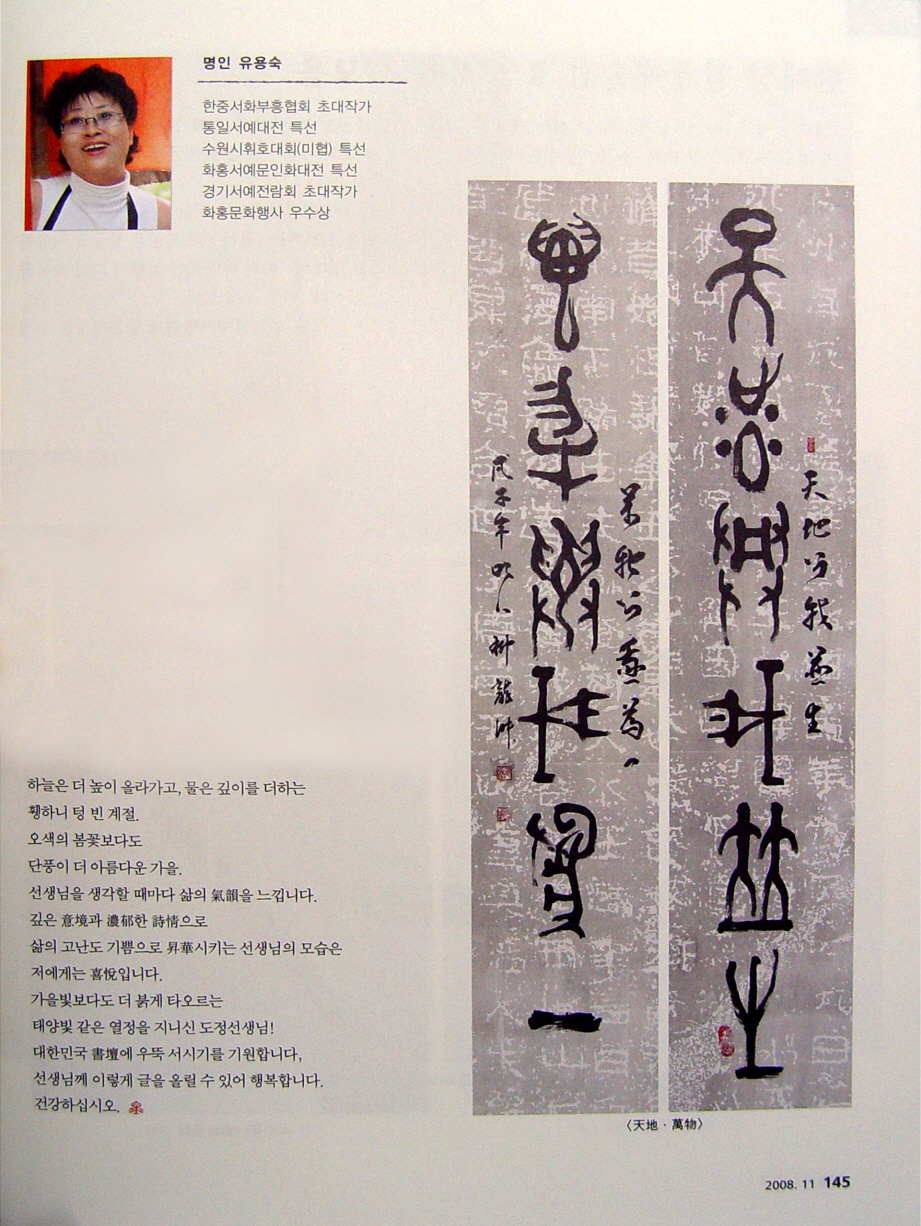 명인 유용숙
한중서화부흥협회 초대작가
통일서예대전 특선
수원시휘호대회(미협) 특선
화홍서예문인화대전 특선
경기서예전람회 초대작가
화홍문화행사 우수상
天地與我並生
萬物與我為一
天地与我並生
하늘은 더 높이 올라가고, 물은 깊이를 더하는
휑하니 텅 빈 계절.
오색의 봄꽃보다도
단풍이 더 아름다운 가을.
선생님을 생각할 때마다 삶의 氣韻을 느낍니다.
깊은 意境과 濃郁한 詩情으로
삶의 고난도 기쁨으로 昇華시키는 선생님의 모습은
저에게는 喜悅입니다.
가을빛보다도 더 붉게 타오르는
태양빛 같은 열정을 지니신 도정선생님!
대한민국 書壇에 우뚝 서시기를 기원합니다,
선생님께 이렇게 글을 올릴 수 있어 행복합니다.
건강하십시오.
〈天地 · 萬物〉
2008. 11 145